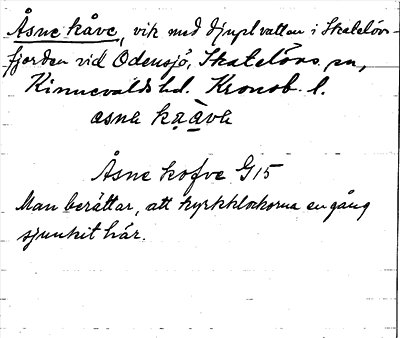 Åsne kåve, vik med djupt vatten i Skatelövs-
fjorden vid Odensjö, Skatelövs sn,
Kinnevalds hd. Kronob. l.
åsnɐ kǫ̀àvɐ
Åsne kofve G15
Man berättar, att kyrkklockorna en gång
sjunkit här.